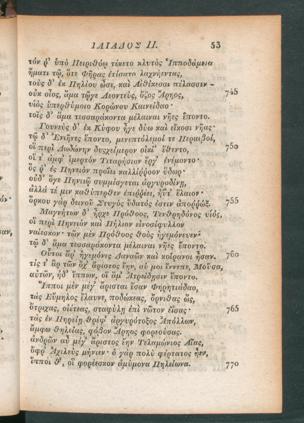 ΙΛΙΑΔΟΣ Π. 53
τόν ῥ' ὑπὸ Πειριθόῳ τέκετο κλυτὸς Ἱπποδάμεια
ἤματι τῷ, ὅτε Φῆρας ἐτίσατο λαχνήεντας,
τοὺς δ' ἐκ Πηλίου ὦσε, καὶ Αἰθίκεσσι πέλασσιν -
οὐκ οἶος, ἅμα τῷγε Λεοντεὺς, ὄζος Ἄρηος, 745
υἱὸς ὑπερθύμοιο Κορώνου Καινείδαο·
τοῖς δ' ἅμα τεσσαράκοντα μέλαιναι νῆες ἕποντο.
Γουνεὺς δ' ἐκ Κύφου ἦγε δύω καὶ εἴκοσι νῆας·
τῷ δ' Ἐνιῆνες ἕποντο, μενεπτόλεμοί τε Περαιβοὶ,
οἳ περὶ Δωδώνην δυσχείμερον οἰκί' ἔθεντο, 750
οἵ τ' ἀμφ' ἱμερτὸν Τιταρήσιον ἔργ' ἐνέμοντο·
ὅς ῥ' ἐς Πηνειὸν προΐει καλλίῤῥοον ὕδωρ·
οὐδ' ὅγε Πηνειῷ συμμίσγεται ἀργυροδίνῃ,
ἀλλά τέ μιν καθύπερθεν ἐπιῤῥέει, ἠΰτ' ἔλαιον·
ὅρκου γὰρ δεινοῦ Στυγὸς ὕδατός ἐστιν ἀποῤῥώξ. 755
Μαγνήτων δ' ἦρχε Πρόθοος, Τενθρηδόνος υἱὸς,
οἳ περὶ Πηνειὸν καὶ Πήλιον εἰνοσίφυλλον
ναίεσκον· τῶν μὲν Πρόθοος θοὸς ἡγεμόνευεν·
τῷ δ' ἅμα τεσσαράκοντα μέλαιναι νῆες ἕποντο.
Οὗτοι ἄρ' ἡγεμόνες Δαναῶν καὶ κοίρανοι ἦσαν. 760
τίς τ' ἂρ τῶν ὄχ' ἄριστος ἔην, σύ μοι ἔννεπε, Μοῦσα,
αὐτῶν, ἠδ' ἵππων, οἳ ἅμ' Ἀτρείδῃσιν ἕποντο.
Ἵπποι μὲν μέγ' ἄρισται ἔσαν Φηρητιάδαο,
τὰς Εὔμηλος ἔλαυνε, ποδώκεας, ὄρνιθας ὣς,
ὄτριχας, οἰέτεας, σταφύλῃ ἐπὶ νῶτον ἐΐσας· 765
τὰς ἐν Πηρείῃ θρέψ' ἀργυρότοξος Ἀπόλλων,
ἄμφω θηλείας, φόβον Ἄρηος φορεούσας.
ἀνδρῶν αὖ μέγ' ἄριστος ἔην Τελαμώνιος Αἴας,
ὄφρ' Ἀχιλεὺς μήνιεν· ὁ γὰρ πολὺ φέρτατος ἦεν,
ἵπποι θ', οἳ φορέεσκον ἀμύμονα Πηλείωνα. 770